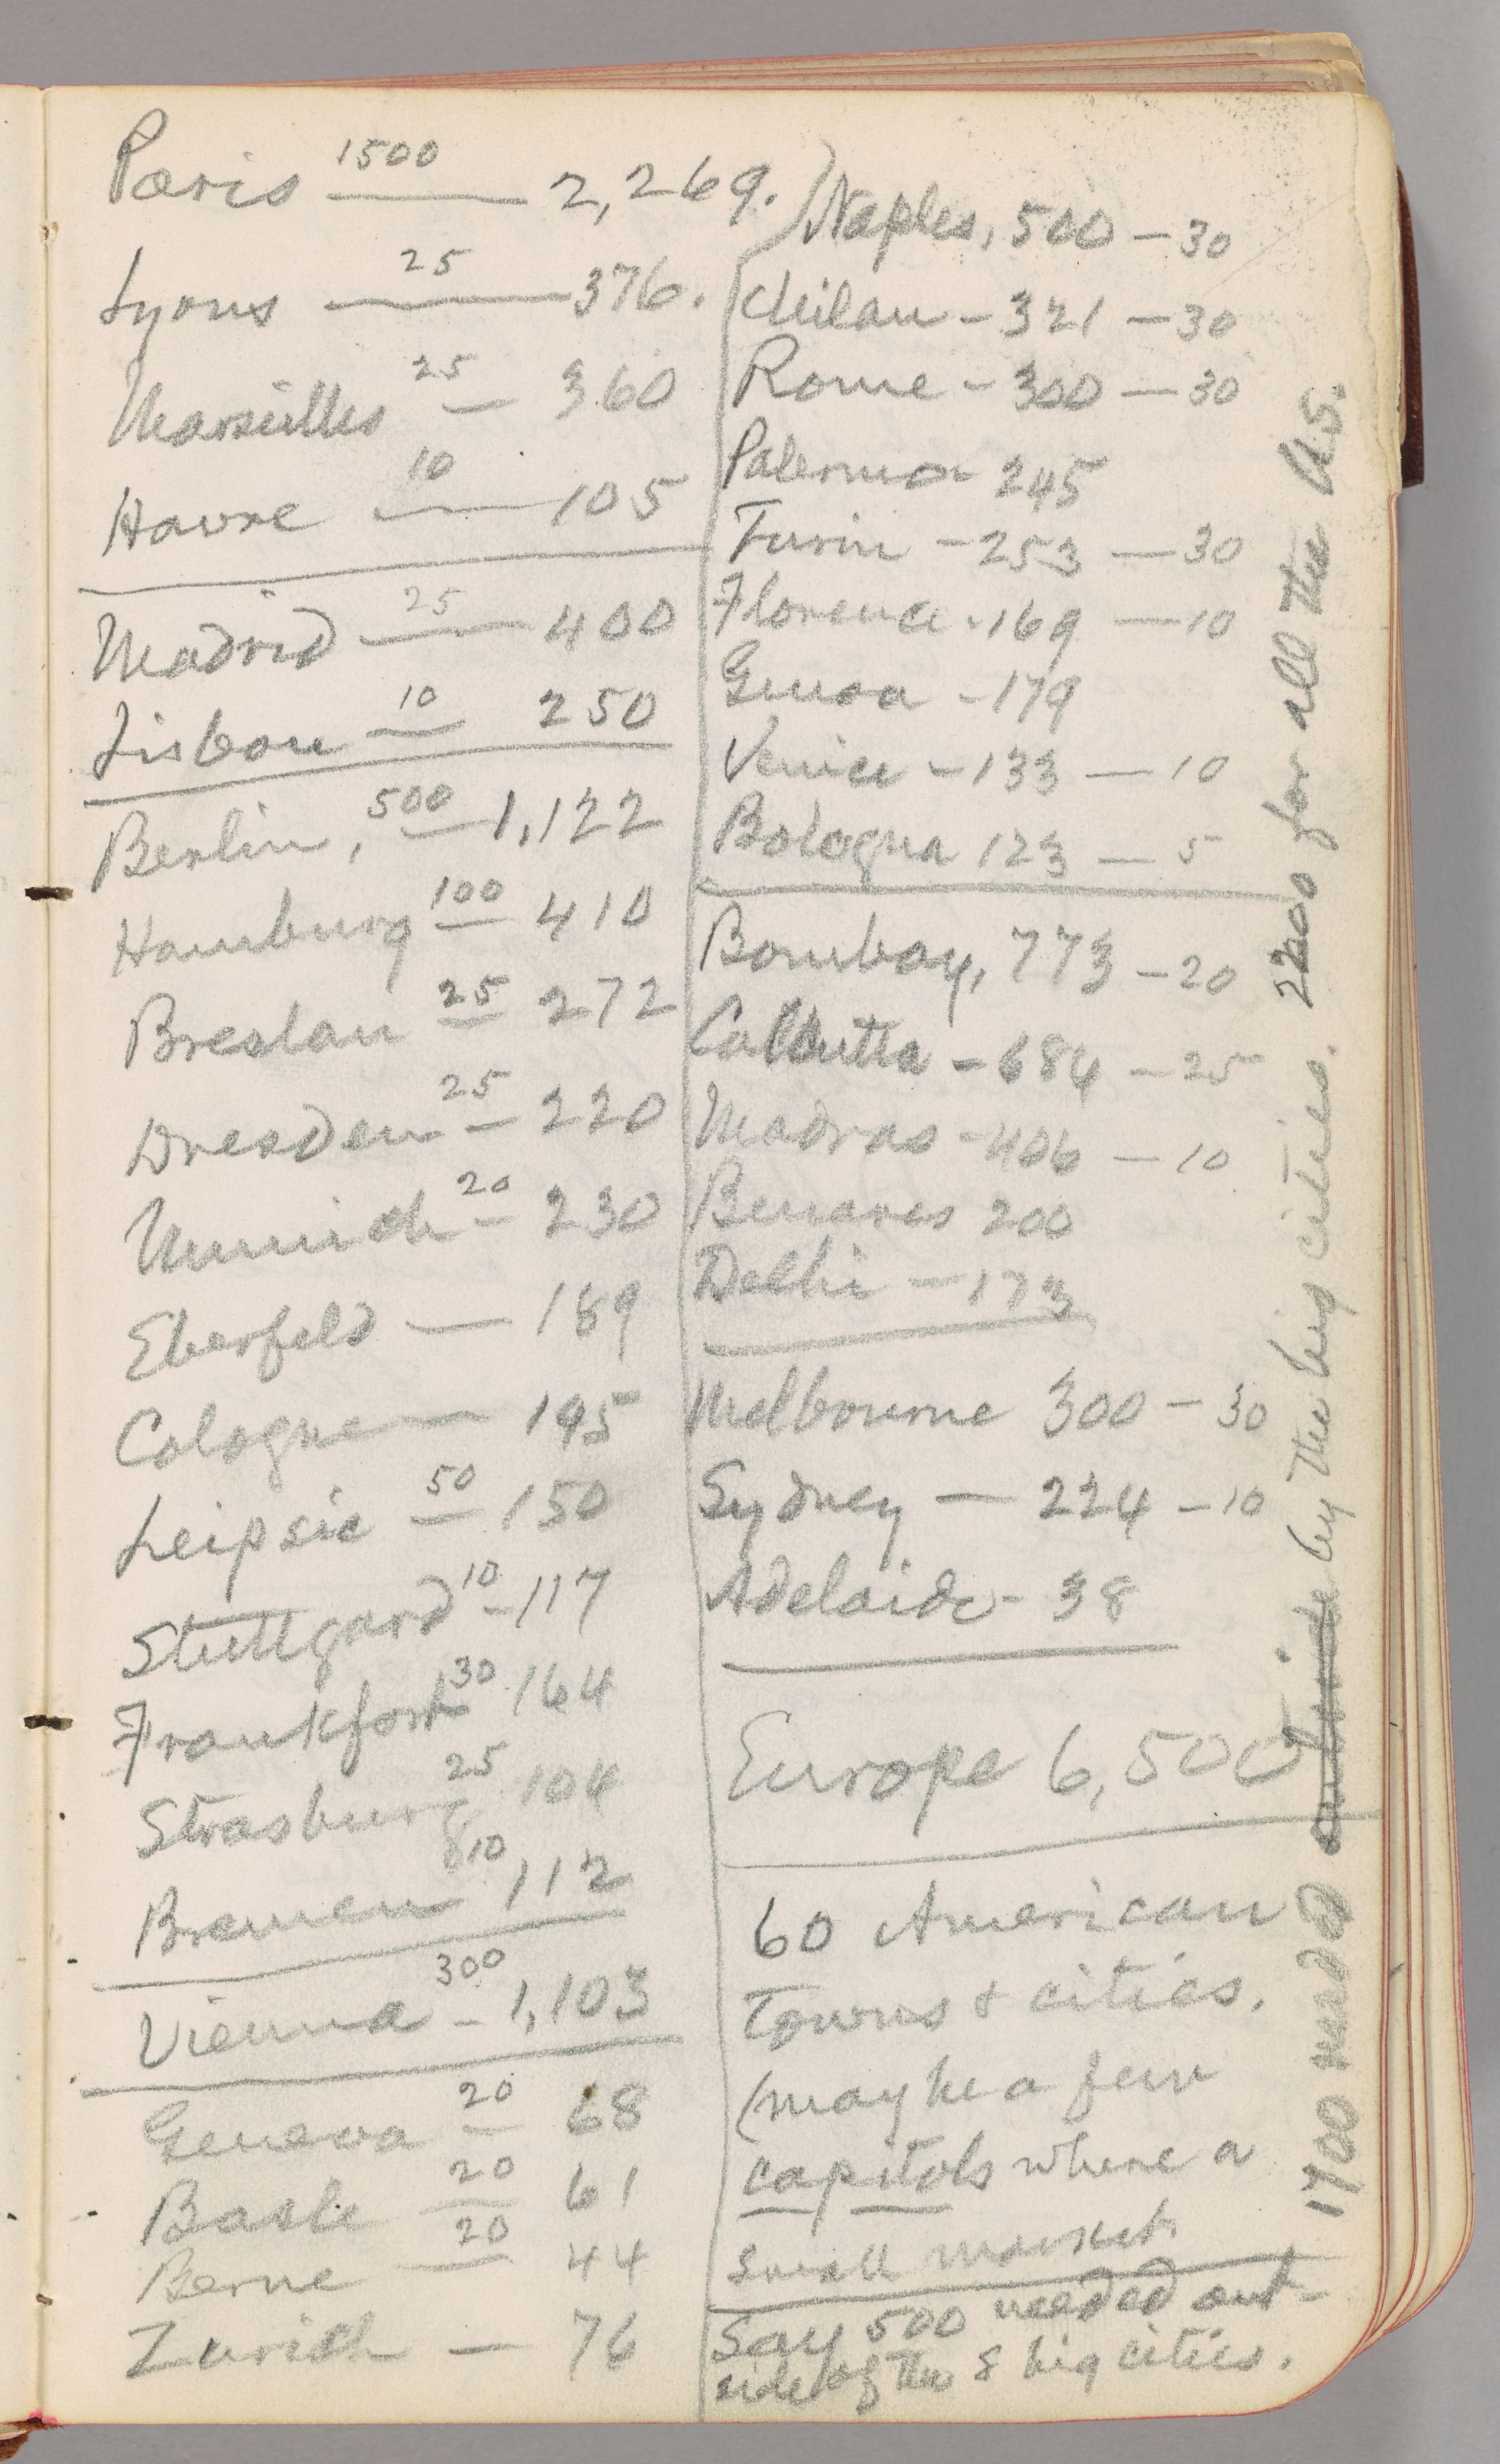 Paris 1500 — 2,269.
Lyons 25 — 376.
Marseilles 25 — 360
Havre 10 — 105
Madrid 25 — 400
Lisbon 10 — 250
Berlin, 500 — 1,122
Hamburg 100 — 410
Breslau 25 — 272
Dresden 25 — 220
Munich 20 — 230
Eberfeld — 189
Cologne — 195
Leipsic 50 — 150
Stuttgard 10 — 117
Frankfort 30 164
Strasburg 25 104
Bremen 10 112
Vienna 300 — 1,103
Geneva 20 — 68
Basle 20 — 61
Berne 20 — 44
Zurich — 76
Naples, 500 — 30
Milan — 321 — 30
Rome — 300 — 30
Palermo — 245
Turin — 253 — 30
Florence - 169 — 10
Genoa — 179
Venice — 133 — 10
Bologna 123 — 5
Bombay, 773 — 20
Calcutta — 684 — 25
Madras — 406 — 10
Benares 200
Delhi — 173
Melbourne 300 — 30
Sydney — 224 — 10
Adelaide — 38
Europe 6,500
60 American
Towns & cities.
(maybe a few
capitols where a
small market.
Say 500 needed out-
side of the 8 big cities.
1700 needed outside by the big cities. 2200 for all the U.S.